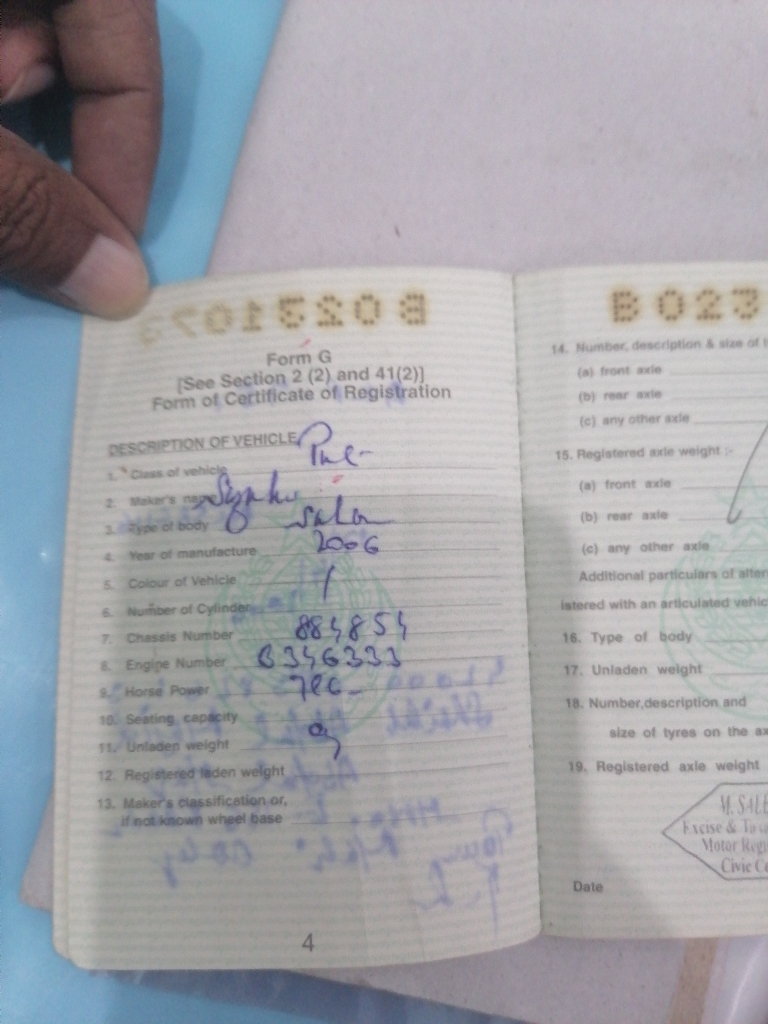 B 023
Form G
[See Section 2 (2) and 41(2)]
Form of Certificate of Registration
DESCRIPTION OF VEHICLE
1. Class of vehicle
2. Maker's name
3. Type of body
4. Year of manufacture 2006
5. Colour of Vehicle
6. Number of Cylinder
7. Chassis Number 884854
8. Engine Number 6346333
9. Horse Power
10. Seating capacity
11. Unladen weight
12. Registered laden weight
13. Maker's classification or,
if not known wheel base
4
14. Number, description & size of
(a) front axle
(b) rear axle
(c) any other axle
15. Registered axle weight :-
(a) front axle
(b) rear axle
(c) any other axle
Additional particulars of alter
istered with an articulated vehic
16. Type of body
17. Unladen weight
18. Number,description and
size of tyres on the ax
19. Registered axle weight
M. SALE
Excise & Ta
Motor Regi
Civic Ce
Date